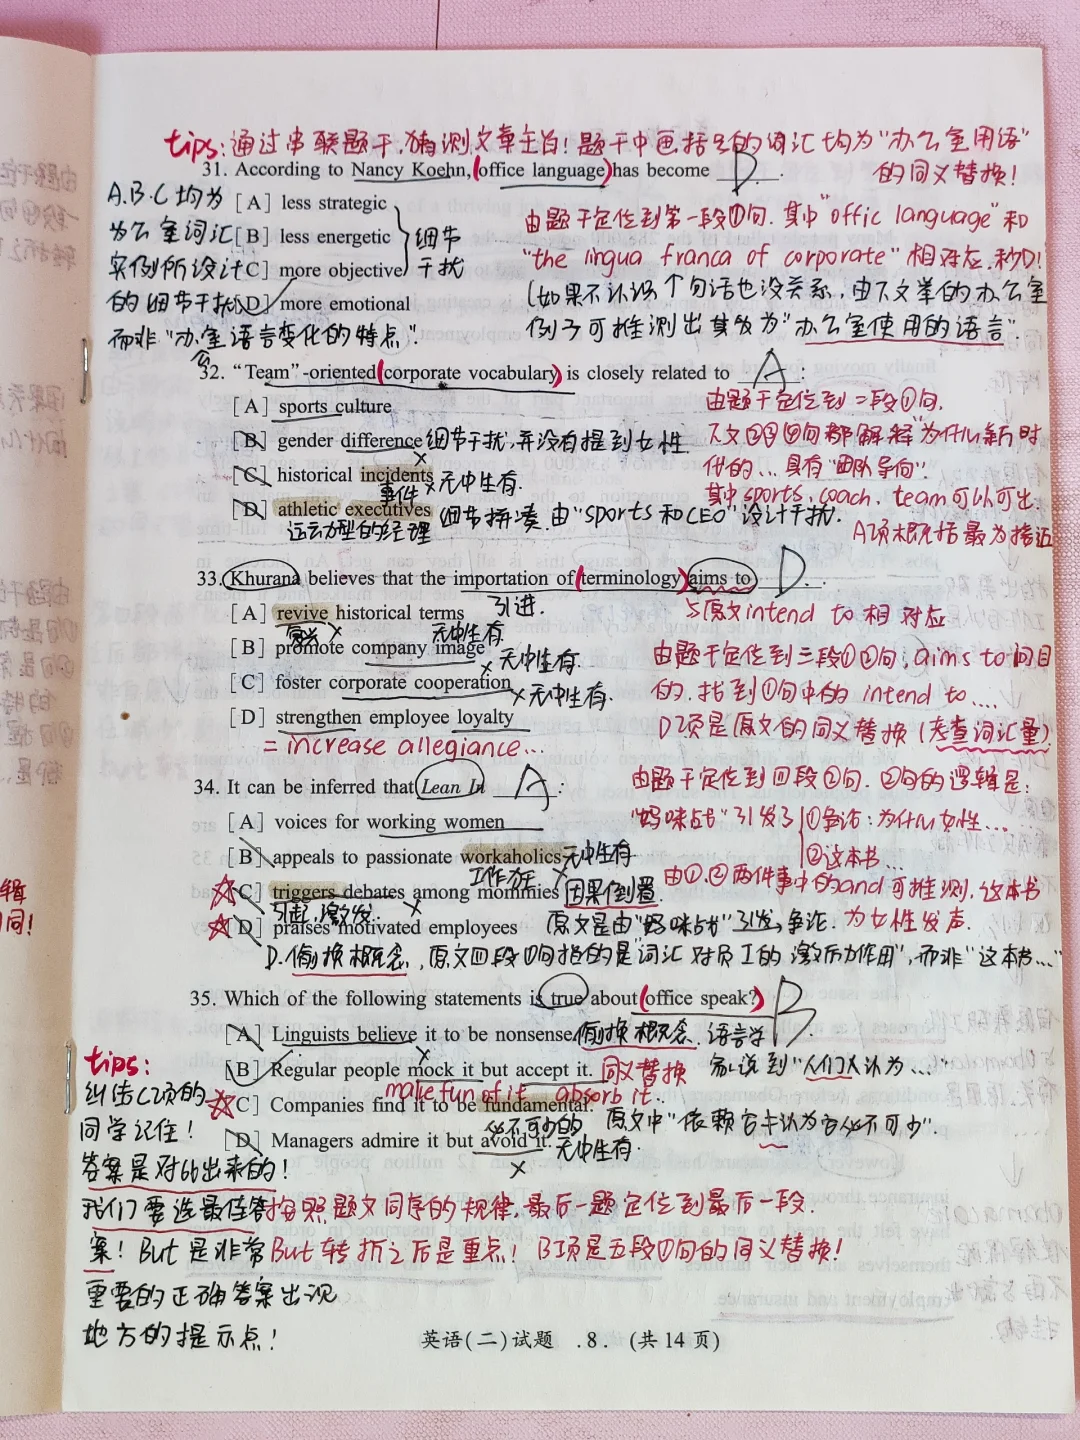 tips:通过串联题干,猜测文章主旨!题干中画括号的词汇均为"办公室用语"
的同义替换!
31. According to Nancy Koehn, (office language) has become D.
A.B.C均为
为公室词汇
实例所设计
的细节干扰
而非"办公室语言变化的特点".
[A] less strategic
[B] less energetic
[C] more objective
[D] more emotional
细节
干扰
由题干定位到第一段①句.其中"offic language"和
"the lingua franca of corporate"相对应.秒D!
(如果不认识个句话也没关系,由下文举的办公室
例子可推测出其发为"办公室使用的语言".
32. “Team”-oriented (corporate vocabulary) is closely related to A:
[A] sports culture
[B] gender difference 细节干扰,并没有提到女性.
[C] historical incidents × 无中生有.
事件
[D] athletic executives 细节拼凑.由"sports和CEO"设计干扰.
运动型的经理
由题干定位到二段①句.
下文②③④句都解释"为什么新时
代的...具有"团队导向".
其中sports、coach、team可以可出
A项概括最为接近
33. Khurana believes that the importation of (terminology) aims to D.
引进.
与原文intend to相对应
[A] revive historical terms
复兴 × 无中生有
[B] promote company image × 无中生有
[C] foster corporate cooperation × 无中生有.
[D] strengthen employee loyalty
= increase allegiance...
由题干定位到三段①②句,aims to问目
的.找到①句中的 intend to....
D项是原文的同义替换(考查词汇量)
34. It can be inferred that Lean In A:
[A] voices for working women
[B] appeals to passionate workaholics 无中生有
工作狂 ×
☆[C] triggers debates among mommies 因果倒置.
引起,激发 ×
☆[D] praises motivated employees
原文是由"妈咪战"引发争论.
D.偷换概念,原文四段①句指的是"词汇对员工的激励作用",而非"这本书..."
由题干定位到四段②句.②句的逻辑是:
"妈咪战"引发了
①争论:为什么女性...
②这本书...
由①.②两件事中的and可推测,这本书
为女性发声.
35. Which of the following statements is true about (office speak?) B
[A] Linguists believe it to be nonsense. 偷换概念.语言学
家说到"人们认为..."
[B] Regular people mock it but accept it. 同义替换
make fun of it absorb it.
☆[C] Companies find it to be fundamental.
必不可少的 原文中"依赖它≠认为它必不可少".
[D] Managers admire it but avoid it. 无中生有.
×
tips:
纠结C项的
同学记住!
答案是对比出来的!
我们要选最佳答
案!But是非常
重要的正确答案出现
地方的提示点!
按照题文同序的规律,最后一题定位到最后一段.
But转折之后是重点!B项是五段①句的同义替换!
英语(二)试题 .8. (共14页)